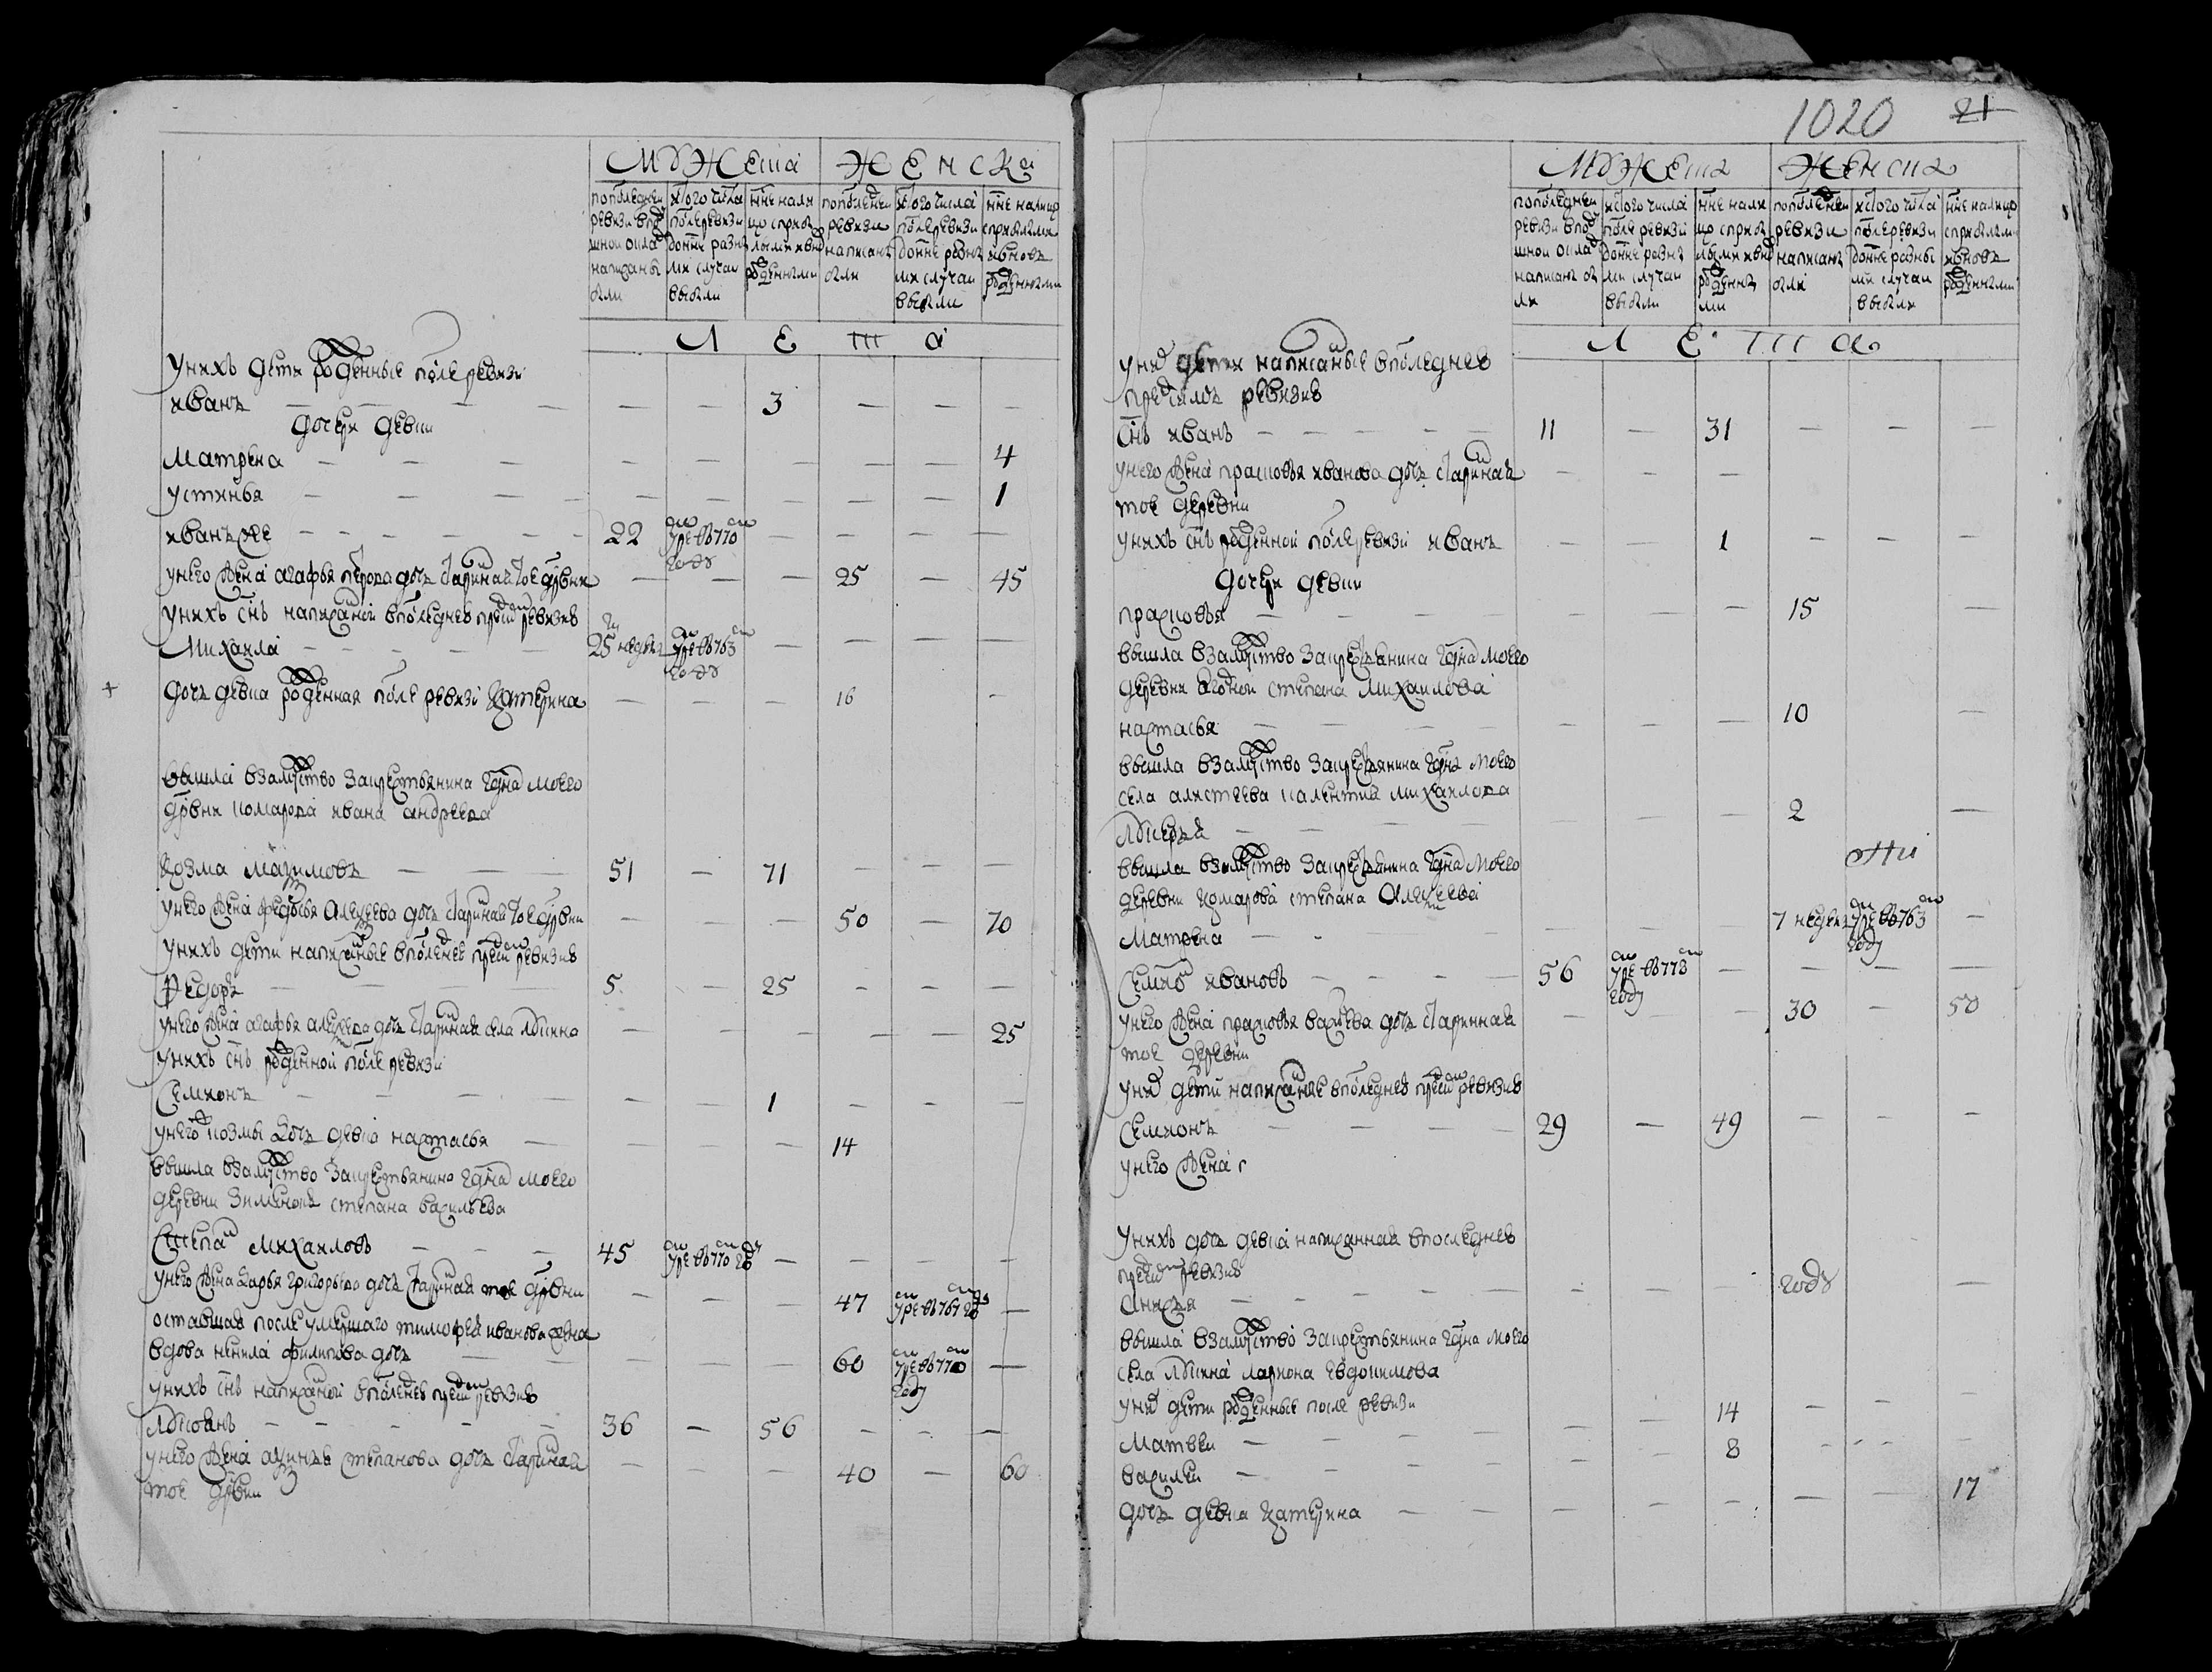 Мужеска Женска
по последней ревизи в подушной оклад написаны были
ис того числа после ревизи до нне разными случаи выбыли
нне налицо с прибылыми и вновь рожденными
по последней ревизи написаны были
ис того числа после ревизи до нне разными случаи выбыли
нне налицо с прибылыми и вновь рожденными
Л е т а
У них дети рожденные после ревизи
Иванъ — — 3 — — —
дочери девки
Матрена — — — — — 4
Устинья — — — — — 1
Иванъ же 22 умре в 770 году — — — —
у него жена Агафья Петрова дочь старинная тое дрвни — — — 25 — 45
у них снъ написанной в последней пред сим ревизие
Михаила 25 недель умре в 763 году — — — —
+ дочь девка рожденная после ревизи Катерина — — — 16 —
вышла в замужство за крестьянина гдна моего
дрвни Комарова Ивана Андреева
Козма Максимовъ 51 — 71 — — —
у него жена Федосья Алексеева дочь старинная тое дрвни — — — 50 — 70
у них дети написанные в последней пред сим ревизие
Федоръ 5 — 25 — — —
у него жена Агафья Алексеева дочь старинная села Лыкина — — — — — 25
у них снъ рожденной после ревизи
Семионъ — — 1 — — —
у него ж Козмы дочь девка Настасья — — — 14
вышла в замужство за крестьянина гдна моего
деревни Зименок Степана Васильева
Степан Михаиловъ 45 умре в 770 году — — — —
у него жена Дарья Григорьева дочь старинная тое дрвни — — — 47 умре в 767 году —
оставшая после умершаго Тимофея Иванова жена
вдова Ненила Филипова дочь — — — 60 умре в 770 году —
у них снъ написанной в последней пред сим ревизие
Лукоянъ 36 — 56 — — —
у него жена Акинья Степанова дочь старинная — — — 40 — 60
тое дрвни
1020 21
Мужеска Женска
по последней ревизи в подушной оклад написаны были
ис того числа после ревизи до нне разными случаи выбыли
нне налицо с прибылыми и вновь рожденными
по последней ревизи написаны были
ис того числа после ревизи до нне разными случаи выбыли
нне налицо с прибылыми и вновь рожденными
Л е т а
у них дети написаные в последней
пред симъ ревизие
снъ Иванъ 11 — 31 — — —
у него жена Прасковья Иванова дочь старинная — — —
тое деревни
у них снъ рожденной после ревизи Иванъ — — 1 — — —
дочери девки
Прасковья — — — 15 —
вышла в замужство за крестьянина гдна моего
деревни Степана Михаилова
Настасья — — — 10 —
вышла в замужство за крестьянина гдна моего
села Михаилова
Лукерья — — — 2 —
вышла в замужство за крестьянина гдна моего
деревни Комарова Степана Алексеева
Матрена — — — 7 недель умре в 763 году —
Семион Ивановъ 56 умре в 773 году — — — —
у него жена Прасковья Васильева дочь старинная — — — 30 — 50
тое деревни
у них дети написанные в последней пред сим ревизие
Семионъ 29 — 49 — — —
у него жена
У них дочь девка написанная в последней
пред сим ревизие
Анисья — — — году —
вышла в замужство за крестьянина гдна моего
села Лыкина Лариона Евдокимова
у них дети рожденные после ревизи
Матвеи — — 14 — — —
Василеи — — 8 — — —
дочь девка Катерина — — — — — 17